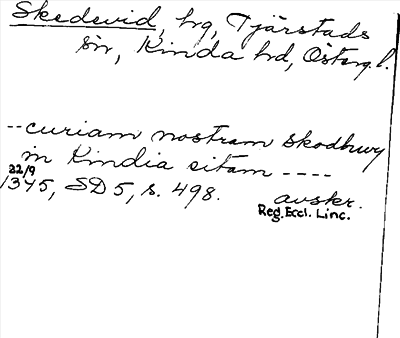 Skedevid, hrg, Tjärstads
sn, Kinda hd, Österg. l.
--curiam nostram skodhwy
in Kindia sitam ----
22/9
1345, SD 5, s. 498. avskr.
Reg. Eccl. Linc.